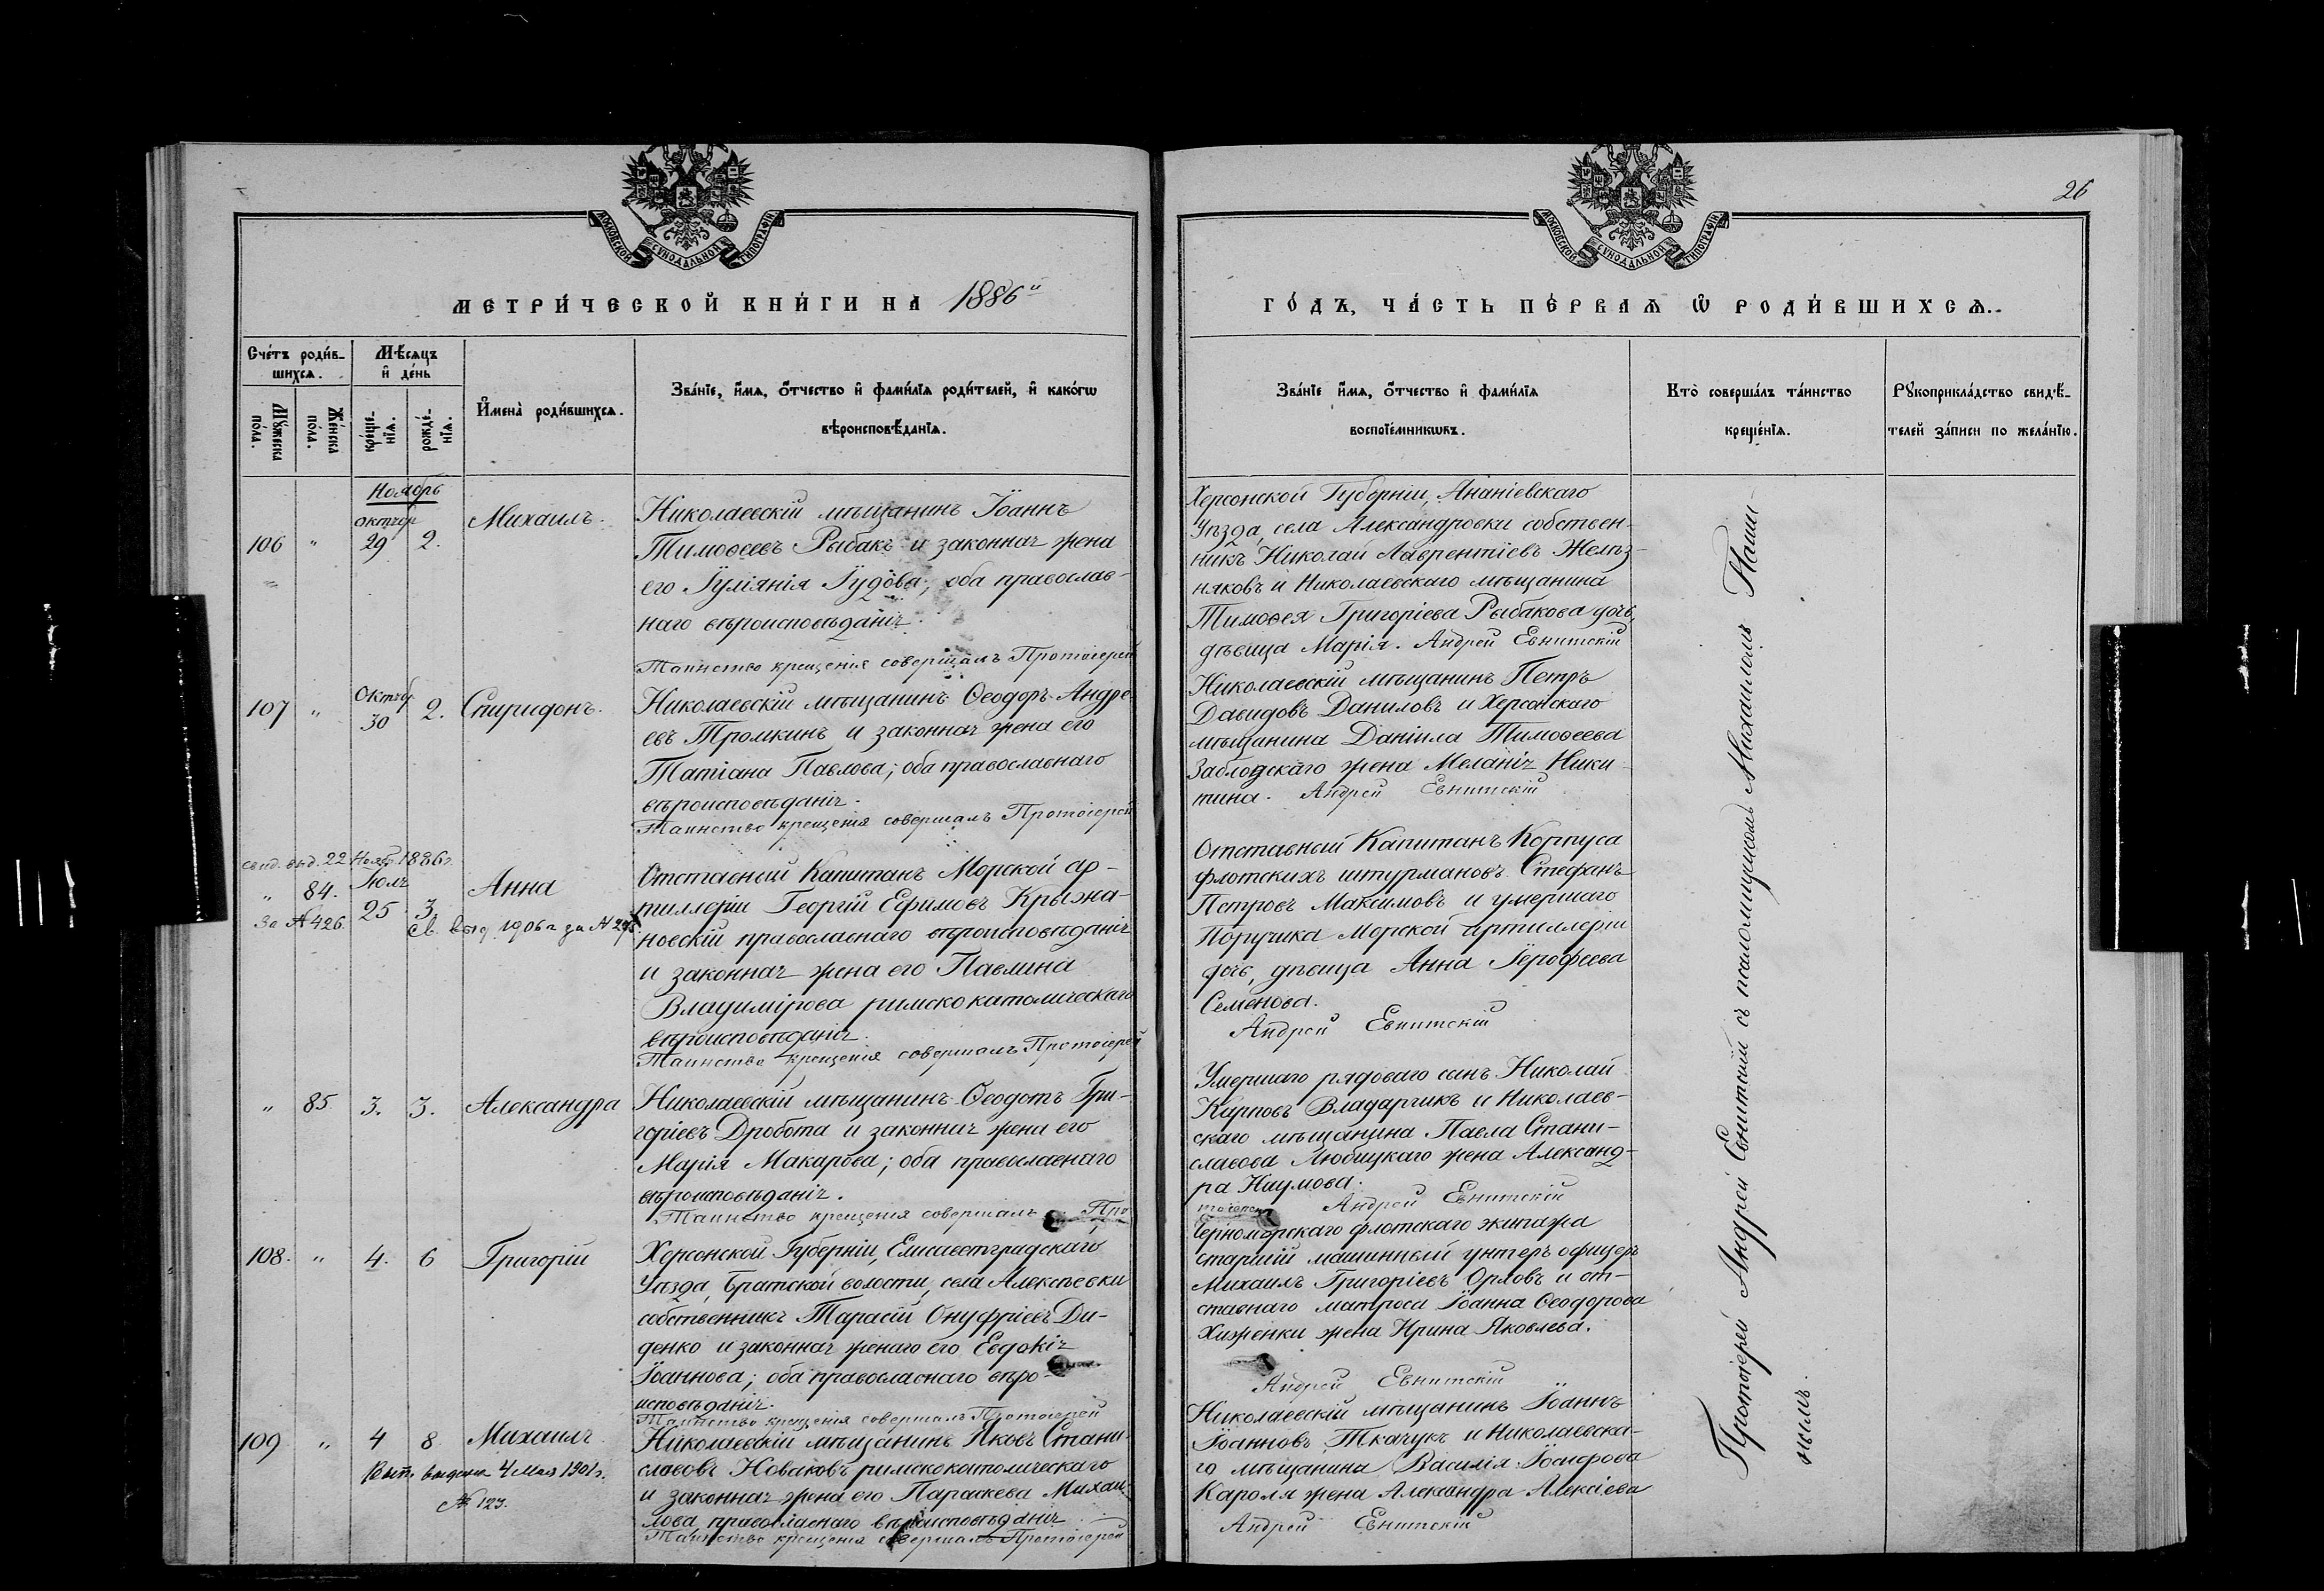 26
МОСКОВСКОЙ СУНОДАЛЬНОЙ ТИПОГРАФІИ
МОСКОВСКОЙ СУНОДАЛЬНОЙ ТИПОГРАФІИ
МЕТРИ́ЧЕСКОЙ КНИ́ГИ НА 1886й
ГО́ДЪ, ЧА́СТЬ ПЕ́РВАЯ Ѿ РОДИ́ВШИХСЯ..
Сче́тъ роди́в-
шихся.
Мѣ́сяцъ
и҆ де́нь
Му́жеска
пола.
Же́нска
пола.
креще́-
нїя.
рожде́-
нїя.
И҆мена̀ роди́вшихся.
Зва́нїе, и҆́мя, ѻ҆́тчество и҆ фами́лїя роди́телей, и҆ како́гѡ
вѣроисповѣ́данїя.
Зва́нїе и҆́мя, ѻ҆́тчество и҆ фами́лїя
воспрїе́мникѡвъ.
Кто̀ соверша́лъ та́инство
креще́нїя.
Рꙋкоприкла́дство свидѣ́-
телей за́писи по жела́нїю.
Ноябрь
106 " Октяб 29 2. Михаилъ.
Николаевскій мѣщанинъ Іоаннъ
Тимоѳеевъ Рыбакъ и законная жена
его Іуліянія Гудова; оба православ-
наго вѣроисповѣданія.
Таинство крещенія совершалъ Протоіерей
Херсонской Губерніи, Ананіевскаго
Уѣзда, села Александровки собствен-
никъ Николай Лаврентіевъ Желѣз-
няковъ и Николаевскаго мѣщанина
Тимоѳея Григоріева Рыбакова дочь,
дѣвица Марія. Андрей Евнитскій
107 " Октяб. 30 2. Спиридонъ.
Николаевскій мѣщанинъ Ѳеодоръ Андре-
евъ Тромкинъ и законная жена его
Татіана Павлова; оба православнаго
вѣроисповѣданія.
Таинство крещенія совершалъ Протоіерей
Николаевскій мѣщанинъ Петръ
Давидовъ Даниловъ и Херсонскаго
мѣщанина Даніила Тимоѳеева
Заблодскаго жена Меланія Ники-
тина. Андрей Евнитскій
свид. выд. 22 Нояб. 1886 г.
" 84. Іюль 25 3. Анна
За № 426.
св. выд 1906 г за №
Отставный Капитанъ Морской ар-
тиллеріи Георгій Ефимовъ Крыжа-
новскій православнаго вѣроисповѣданія
и законная жена его Павлина
Владимірова римско католическаго
вѣроисповѣданія.
Таинство крещенія совершалъ Протоіерей
Отставный Капитанъ Корпуса
флотскихъ штурмановъ Стефанъ
Петровъ Максимовъ и умершаго
Поручика Морской артиллеріи
дочь, дѣвица Анна Іерофеева
Семенова.
Андрей Евнитскій
" 85 3. 3. Александра
Николаевскій мѣщанинъ Ѳеодотъ Гри-
горіевъ Дробота и законная жена его
Марія Макарова; оба православнаго
вѣроисповѣданія.
Таинство крещенія совершалъ Про
Умершаго рядоваго сынъ Николай
Карповъ Владарчикъ и Николаев-
скаго мѣщанина Павла Стани-
славова Любицкаго жена Александ-
ра Наумова.
тоіерей Андрей Евнитскій
108. " 4. 6 Григорій
Херсонской Губерніи, Елисаветградскаго
Уѣзда, Братской волости, села Алексѣевки
собственникъ Тарасій Онуфріевъ Ди-
денко и законная женаго его Евдокія
Іоаннова; оба православнаго вѣро-
исповѣданія.
Таинство крещенія совершалъ Протоіерей
Черноморскаго флотскаго экипажа
старшій машинный унтеръ офицеръ
Михаилъ Григоріевъ Орловъ и от-
ставнаго матроса Іоанна Ѳеодорова
Хиженки жена Ирина Яковлева.
Андрей Евнитскій
109 " 4 8 Михаилъ
выдана 4 Мая 1901 г.
№ 123.
Николаевскій мѣщанинъ Яковъ Стани-
славовъ Новаковъ римско католическаго
и законная жена его Параскева Михаи-
лова православнаго вѣроисповѣданія
Таинство крещенія совершалъ Протоіерей
Николаевскій мѣщанинъ Іоаннъ
Іоанновъ Ткачукъ и Николаевска-
го мѣщанина Василія Іосифова
Кароля жена Александра Алексіева
Андрей Евнитскій
Протоіерей Андрей Евнитскій съ псаломщикомъ Михаиломъ